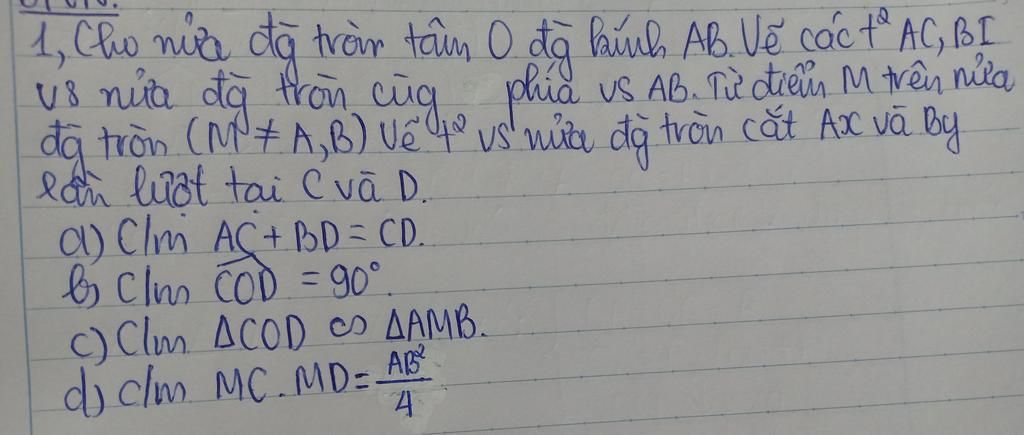 1, Cho nửa đg tròn tâm O đg kính AB. Vẽ các t² AC, BI
vs nửa đg tròn cùg phía vs AB. Từ điểm M trên nửa
đg tròn (M ≠ A, B) vẽ t² vs nửa đg tròn cắt Ax và By
lần lượt tại C và D.
a) C/m AC + BD = CD.
b) C/m \widehat{COD} = 90°.
c) C/m ΔCOD ∽ ΔAMB.
d) c/m MC . MD = \frac{AB²}{4}